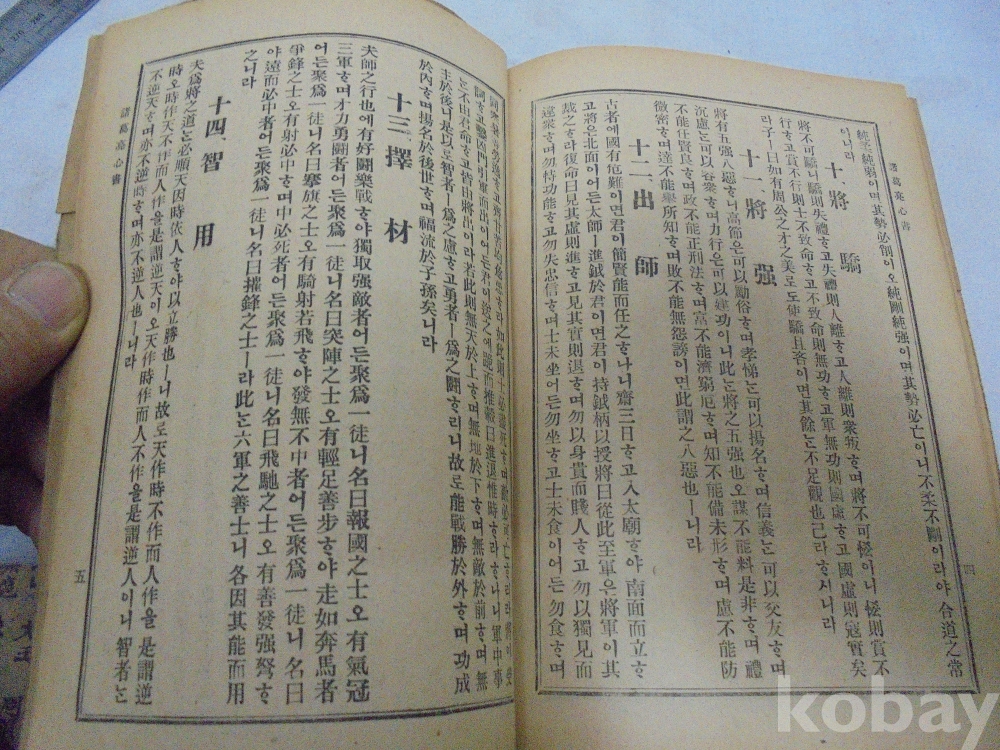 諸葛亮心書
純柔純弱이면其勢必削이오純剛純强이면其勢必亡이니不柔不剛이라야合道之常
이니라
十、將 驕
將不可驕니驕則失禮ᄒᆞ고失禮則人離ᄒᆞ고人離則衆叛ᄒᆞ며將不可恡이니恡則賞不
行ᄒᆞ고賞不行則士不致命ᄒᆞ고不致命則無功ᄒᆞ고軍無功則國虛ᄒᆞ고國虛則寇實矣
리子ㅣ曰如有周公之才之美로도使驕且吝이면其餘ᄂᆞᆫ不足觀也已라ᄒᆞ시니라
十一、將 强
將有五强八惡ᄒᆞ니高節은可以勵俗ᄒᆞ며孝悌ᄂᆞᆫ可以揚名ᄒᆞ며信義ᄂᆞᆫ可以交友ᄒᆞ며
沉慮ᄂᆞᆫ可以容衆ᄒᆞ며力行은可以建功이니此ᄂᆞᆫ將之五强也오謀不能料是非ᄒᆞ며禮
不能任賢良ᄒᆞ며政不能正刑法ᄒᆞ며富不能濟窮厄ᄒᆞ며知不能備未形ᄒᆞ며慮不能防
微密ᄒᆞ며達不能擧所知ᄒᆞ며敗不能無怨謗이면此謂之八惡也ㅣ니라
十二、出 師
古者에國有危難이면君이簡賢能而任之ᄒᆞ나니齋三日ᄒᆞ고入太廟ᄒᆞ야南面而立ᄒᆞ
고將은北面이어든太師ㅣ進鉞於君이면君이持鉞柄以授將曰從此至軍은將軍이其
裁之ᄒᆞ라復命曰見其虛則進ᄒᆞ고見其實則退ᄒᆞ며勿以身貴而賤人ᄒᆞ고勿以獨見而
違衆ᄒᆞ며勿恃功能ᄒᆞ고勿失忠信ᄒᆞ며士未坐어든勿坐ᄒᆞ고士未食이어든勿食ᄒᆞ며
四
同寒暑
어든君이
進退惟時ᄒᆞ라ᄒᆞ나니軍中事
ᄂᆞᆫ不由君命ᄒᆞ고皆由將出이라若此則無天於上ᄒᆞ며無地於下ᄒᆞ며無敵於前ᄒᆞ며無
主於後니是以로智者ㅣ爲之慮ᄒᆞ고勇者ㅣ爲之鬪ᄒᆞ리니故로能戰勝於外ᄒᆞ며功成
於內ᄒᆞ며揚名於後世ᄒᆞ며福流於子孫矣니라
十三、擇 材
夫師之行也에有好鬪樂戰ᄒᆞ야獨取强敵者어든聚爲一徒ᄒᆞ니名曰報國之士오有氣冠
三軍ᄒᆞ며才力勇鬪者어든聚爲一徒니名曰突陣之士오有輕足善步ᄒᆞ야走如奔馬者
어든聚爲一徒니名曰搴旗之士오有騎射若飛ᄒᆞ야發無不中者어든聚爲一徒니名曰
爭鋒之士오有射必中ᄒᆞ며中必死者어든聚爲一徒니名曰飛馳之士오有善發强弩ᄒᆞ
야遠而必中者어든聚爲一徒니名曰摧鋒之士ㅣ라此ᄂᆞᆫ六軍之善士니各因其能而用
之니라
十四、智 用
夫爲將之道ᄂᆞᆫ必順天因時依人ᄒᆞ야以立勝也ㅣ니故로天作時不作而人作을是謂逆
時오時作天不作而人作을是謂逆天이오天作時作而人不作을是謂逆人이니智者ᄂᆞᆫ
不逆天ᄒᆞ며亦不逆時ᄒᆞ며亦不逆人也ㅣ니라
諸葛亮心書
五
kobay